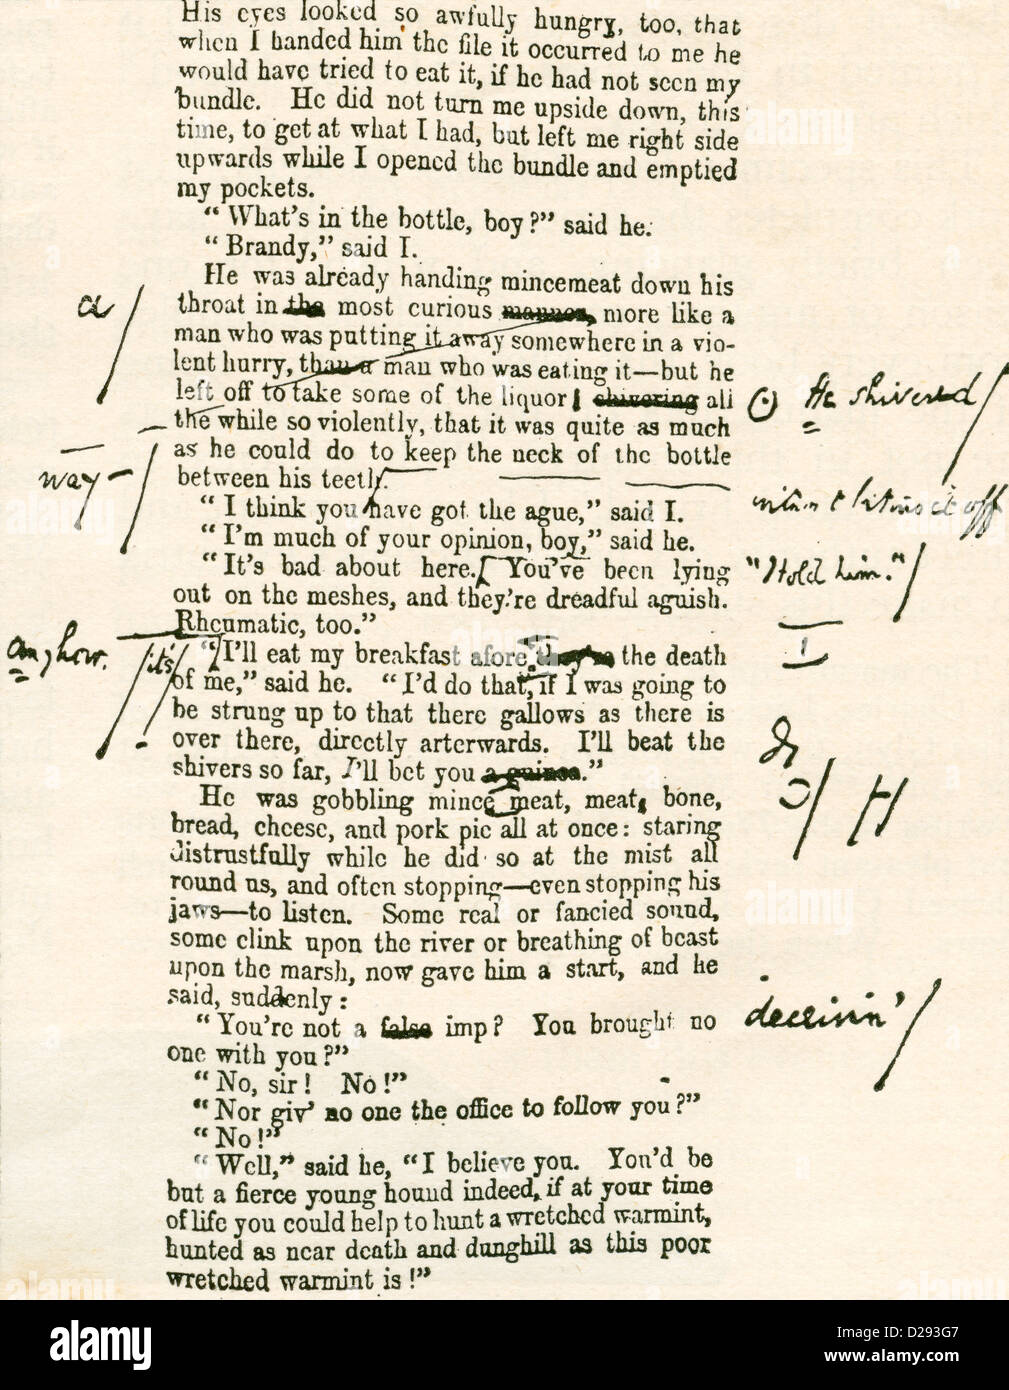 His eyes looked so awfully hungry, too, that
when I handed him the file it occurred to me he
would have tried to eat it, if he had not seen my
bundle. He did not turn me upside down, this
time, to get at what I had, but left me right side
upwards while I opened the bundle and emptied
my pockets.
“What's in the bottle, boy?” said he.
“Brandy,” said I.
He was already handing mincemeat down his
a
throat in the most curious manner, more like a
man who was putting it away somewhere in a vio-
lent hurry, than a man who was eating it—but he
left off to take some of the liquor shivering all
He shivered
the while so violently, that it was quite as much
as he could do to keep the neck of the bottle
way
between his teeth
it off
“I think you have got the ague,” said I.
“I'm much of your opinion, boy,” said he.
“It's bad about here. You've been lying
"Hold him."
out on the meshes, and they're dreadful aguish.
Rheumatic, too.”
anyhow.
it's
I
“I'll eat my breakfast afore they're the death
of me,” said he. “I'd do that, if I was going to
be strung up to that there gallows as there is
over there, directly arterwards. I'll beat the
shivers so far, I'll bet you a guinea.”
He was gobbling mince meat, meat, bone,
H
bread, cheese, and pork pie all at once: staring
distrustfully while he did so at the mist all
round us, and often stopping—even stopping his
jaws—to listen. Some real or fancied sound,
some clink upon the river or breathing of beast
upon the marsh, now gave him a start, and he
said, suddenly:
“You're not a false imp? You brought no
deceivin'
one with you?”
“No, sir! No!”
“Nor giv' no one the office to follow you?”
“No!”
“Well,” said he, “I believe you. You'd be
but a fierce young hound indeed, if at your time
of life you could help to hunt a wretched warmint,
hunted as near death and dunghill as this poor
wretched warmint is!”
alamy
Image ID: D293G7
www.alamy.com